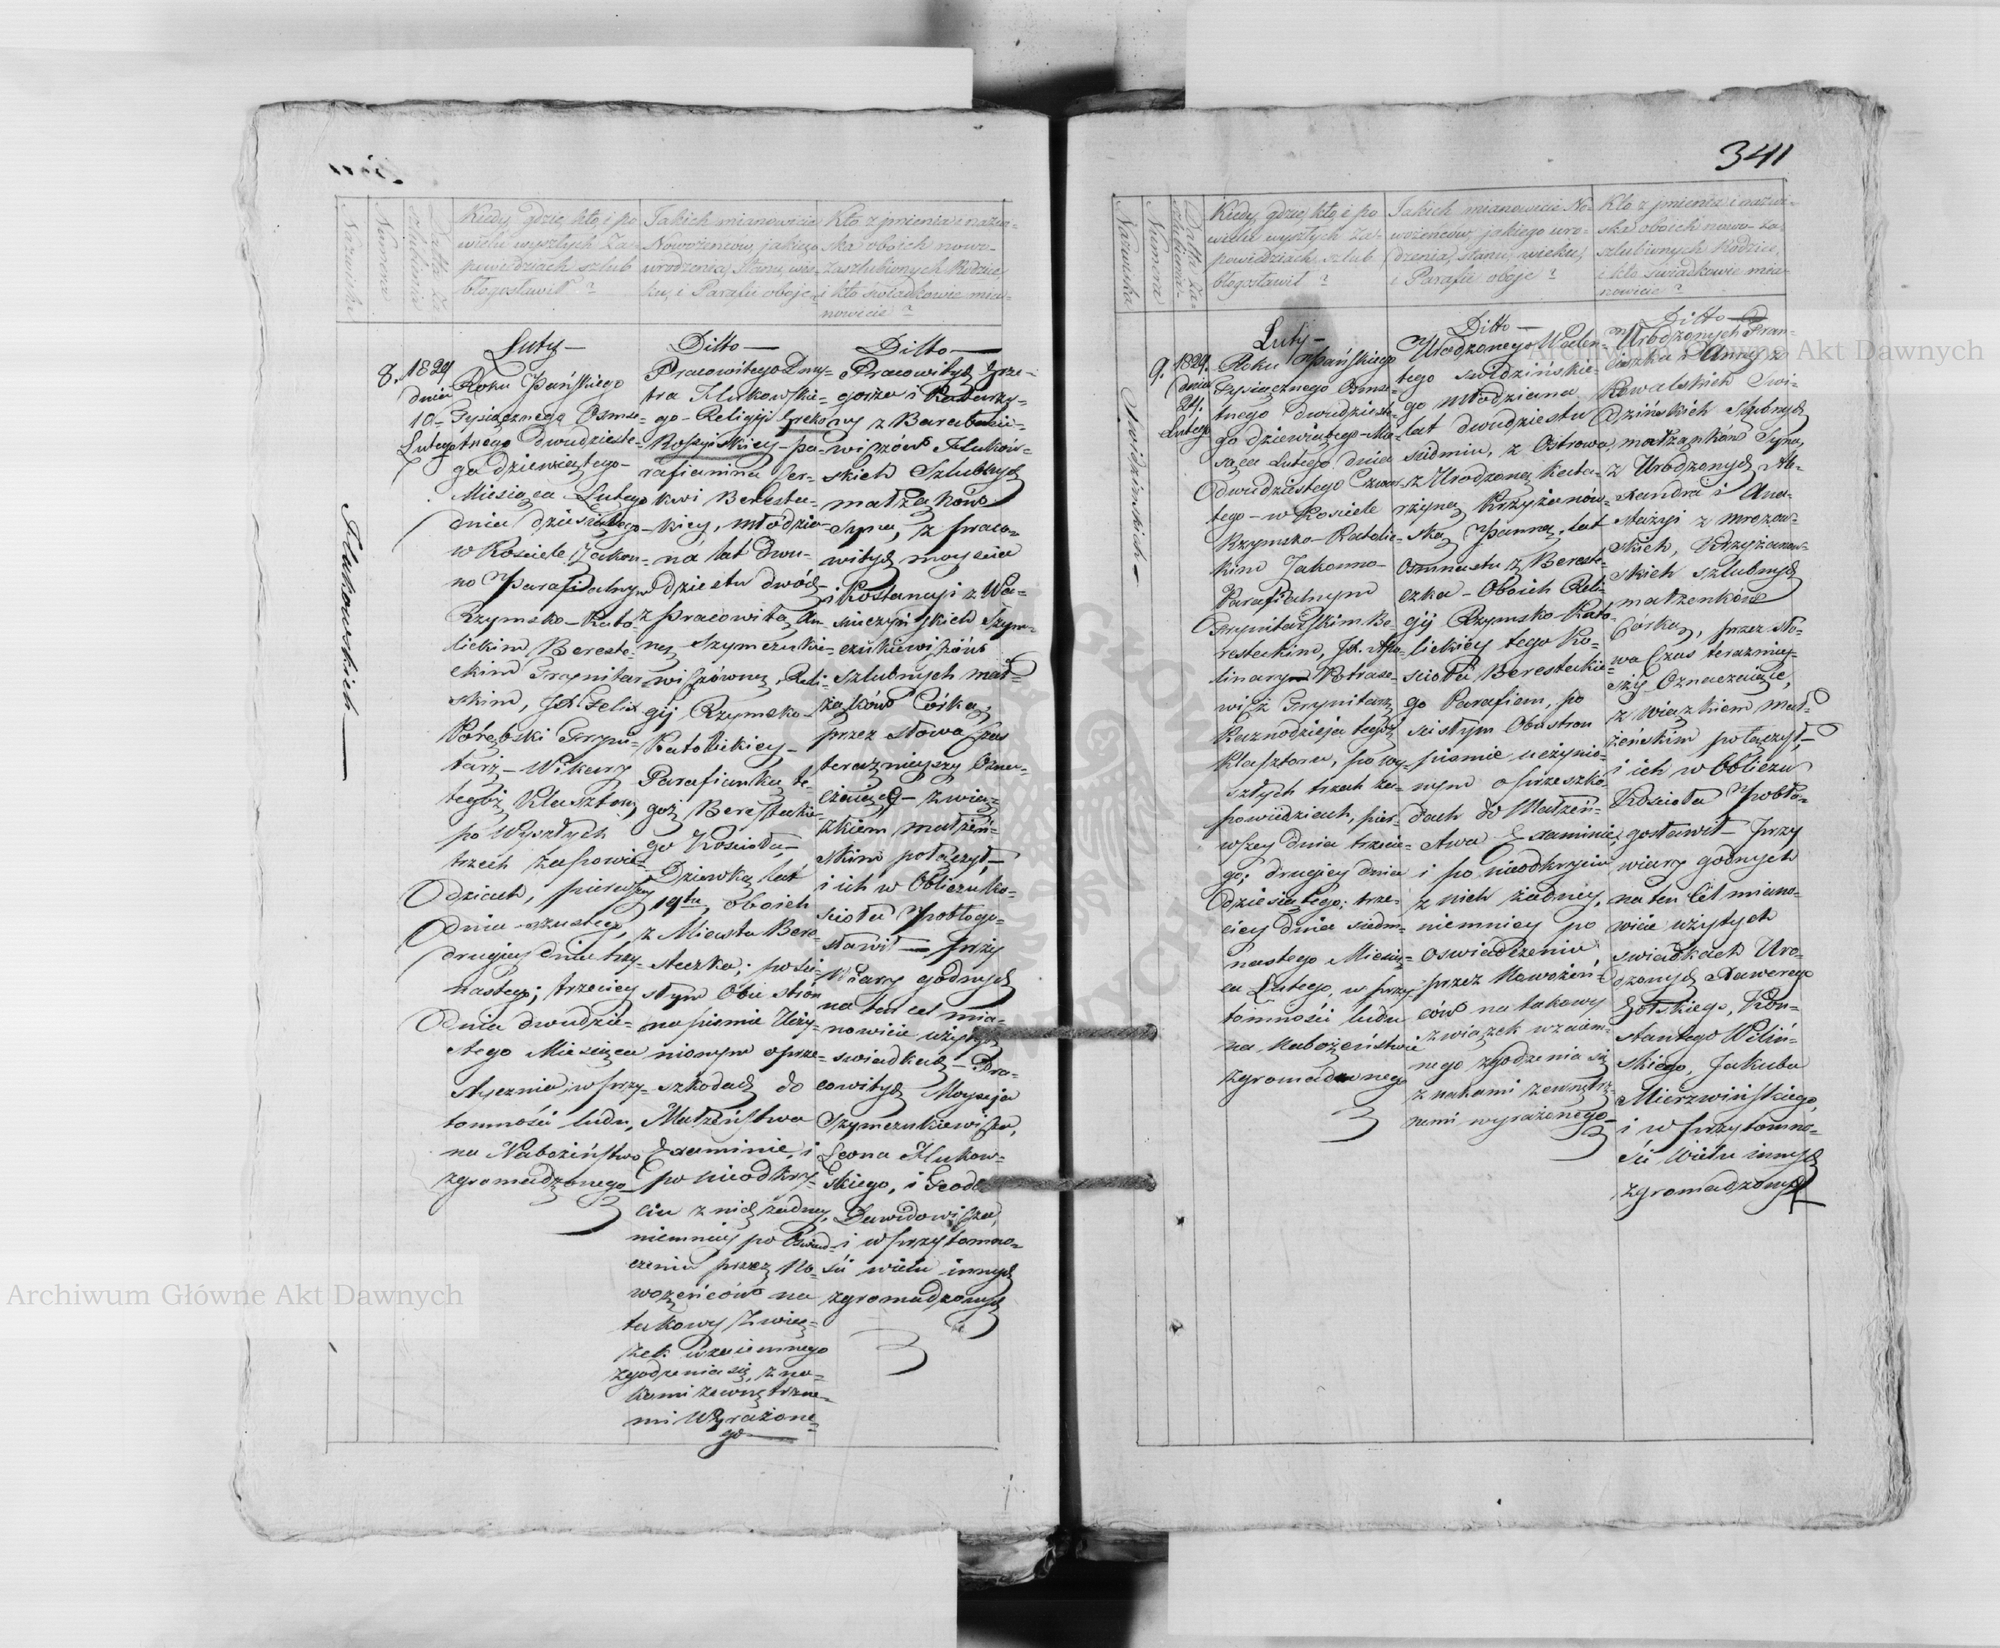 341
Nazwiska
Numera
Datta Za-
szlubienia
Kiedy, gdzie, kto, i po
wielu wyszłych Za-
powiedziach szlub
błogosławił ?
Jakich mianowicie
Nowożencow, jakiego
urodzenia, Stanu, wie-
ku, i Parafii oboje
Kto z jmienia i nazwi-
ska oboich nowo-
zaszlubionych Rodzice,
i kto świadkowie mia-
nowicie ?
8.
1829
dnia
10-
Lutego
Flukowskich
Luty
Roku Pańskiego
Tysiącznego Osmse-
tnego dwudzieste-
go dziewiątego-
Miesiąca Lutego
dnia dziesiątego
w Kościele Zakon-
no Parafialnym
Rzymsko-Kato-
lickim Bereste-
ckim Trynitar-
skim, JX. Felix
Porębski Tryni-
tarz - Wikary
tegoż Klasztoru,
po Wyszłych
trzech zapowie-
dziach, pierwszy
dnia szustego,
drugiey dnia trzy-
nastego; trzeciey
dnia dwudzie-
stego Miesiąca
Stycznia, w przy-
tomności ludu,
na Nabożeństwo
zgromadzonego
Ditto
Pracowitego Dmy-
tra Flukowskie-
go - Religiji Greko
Rossyiskiey - pa-
rafianina Cer-
kwi Bereste-
ckiey, młodzia-
na lat dwu-
dziestu dwóch
z Pracowitą An-
ną Szymczukie-
wiczówną, Reli-
gij Rzymsko-
Katolickiey,
Parafianką te-
goż Berestecki-
go Kościoła,
Dziewką lat
19tu, oboich
z Miasta Bere-
steczka; po ści-
słym Obu stron
na piśmie Uczy-
nionym o prze-
szkodach do
Małżeństwa
Examinie, i
po nieodkry-
ciu z nich żadney,
niemniey po Oswiad-
czeniu przez No-
wożeńców na
takowy Zwią-
zek wzaiemnego
zgodzenia się, zna-
kami zewnętrzne-
mi Wyrażone-
go
Ditto
Pracowitych Grze-
gorza i Katarzy-
ny z Baraba-
wiczów Flukow-
skich Szlubnych
małżąków
Syna, z praco-
witych Moyseia
i Kostancyi z Wa-
Szym-
czukiewiczów
szlubnych mał-
żąków Córką;
przez słowa Czas
teraznieyszy Ozna-
czaiące - zwią-
zkiem małżeń-
skim połączył,
i ich w Obliczu Ko-
scioła Pobłogo-
sławił - przy
Wiary godnych
na ten cel mia-
nowicie użytych
swiadkach - Pra-
cowitych Moyseja
Szymczukiewicza,
Leona Flukow-
skiego, i Teodo
Dawidowicza,
i w przytomno-
ści wielu innych
zgromadzonych
Nazwiska
Numera
Datta Za-
szlubienia
Kiedy, gdzie, kto, i po
wielu wyszłych Za-
powiedziach szlub
błogosławił ?
Jakich mianowicie No-
wożencow, jakiego uro-
dzenia, stanu, wieku,
i Parafii oboje ?
Kto z jmienia i nazwi-
ska oboich nowo-za-
szlubionych Rodzice,
i kto świadkowie mia-
nowicie ?
9.
1829.
dnia
24.
Lutego
Swidzinskich
Luty
Roku Pańskiego
Tysiącznego Osmse-
tnego dwudzieste-
go dziewiątego Mie-
siąca Lutego dnia
dwudziestego Czwar-
tego - w Kosciele
Rzymsko-Katolic-
kim Zakonno-
Parafialnym
Trynitarskim Be-
resteckim, JX. Apo-
linary Potrase-
wicz Trynitarz
Kaznodzieja tegoż
Klasztoru, po wy-
szłych trzech za-
powiedziach, pier-
wszey dnia trzecie-
go; drugiey dnia
dziesiątego; trze-
ciey dnia siedm-
nastego Miesią-
ca Lutego, w przy-
tomności ludu
na Nabożeństwo
zgromadzonego
Ditto
Urodzonego Walen-
tego Swidzińskie-
go Młodziana
lat dwudziestu
siedmiu, z Ostrowa,
z Urodzoną Kata-
rzyną Krzyżanów-
ską Panną, lat
Osmnastu z Bereste-
czka - Oboich Reli-
gij Rzymsko-Kato-
lickiey tego Ko-
ścioła Beresteckie-
go Parafiem, po
scisłym Obustron
pismie uczynio-
nym o przeszko-
dach do Małżeń-
stwa Examinie,
i po nieodkryciu
z nich żadney,
niemniey po
oswiadczeniu
przez Nowożeń-
ców na takowy
związek wzaiem-
nego zgodzenia się
znakami zewnętrz-
nemi wyrażonego
Ditto
Urodzonych Fran-
ciszka i Anny z
Kowalskich Swi-
dzińskich Szlubnych
małżąnków Syna,
z Urodzonych Ale-
xandra i Ana-
stazyi z Mrozow-
skich, Krzyżanow-
skich szlubnych
małżenków
Corką, przez sło-
wa Czas teraźniey-
szy Oznaczaiące,
związkiem mał-
żeńskim połączył,
i ich w Obliczu
Kościoła Pobło-
gosławił - Przy
wiary godnych
na ten Cel miano-
wicie użytych
swiadkach Uro-
dzonych Xawerego
Gotskiego, Kon-
stantego Wiliń-
skiego, Jakuba
Mierzwińskiego,
i w przytomno-
ści Wielu innych
zgromadzonych
Archiwum Główne Akt Dawnych
Archiwum Główne Akt Dawnych